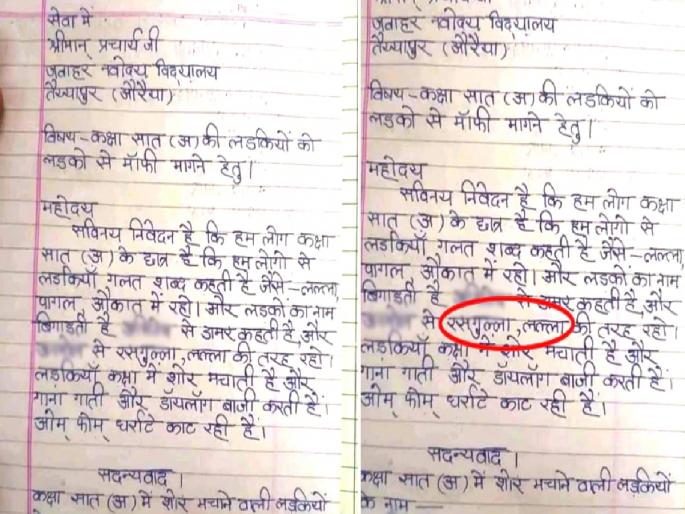 सेवा में
श्रीमान् प्रचार्य जी
जवाहर नवोदय विद्यालय
तैय्यापुर (औरैया)
विषय-कक्षा सात (अ) की लडकियों को
लडको से मॉफी मागने हेतु।
महोदय
सविनय निवेदन है कि हम लोग कक्षा
सात (अ) के छात्र है कि हम लोगो से
लडकियाँ गलत शब्द कहती है जैसे-लल्ला,
पागल औकात में रहो। और लडकों का नाम
बिगाडती है से डामर कहती है, और
से रसगुल्ला, लल्ला की तरह रहो।
लडकियाँ कक्षा में शोर मचाती है और
गाना गाती और डॉयलॉग बाजी करती हैं।
ओम् फोम् धर्राटे काट रही हैं।
सदन्यवाद।
कक्षा सात (अ) में शोर मचाने वाली लडकियों
जवाहर नवोदय विद्यालय
तैय्यापुर (औरैया)
विषय-कक्षा सात (अ) की लडकियों को
लडको से मॉफी मागने हेतु।
महोदय
सविनय निवेदन है कि हम लोग कक्षा
सात (अ) के छात्र है कि हम लोगो से
लडकियाँ गलत शब्द कहती है जैसे-लल्ला,
पागल औकात में रहो। और लडकों का नाम
बिगाडती है से डामर कहती है, और
से रसगुल्ला, लल्ला की तरह रहो।
लडकियाँ कक्षा में शोर मचाती है और
गाना गाती और डॉयलॉग बाजी करती हैं।
ओम् फोम् धर्राटे काट रही हैं।
सदन्यवाद।
कक्षा सात (अ) में शोर मचाने वाली लडकियों
के नाम —